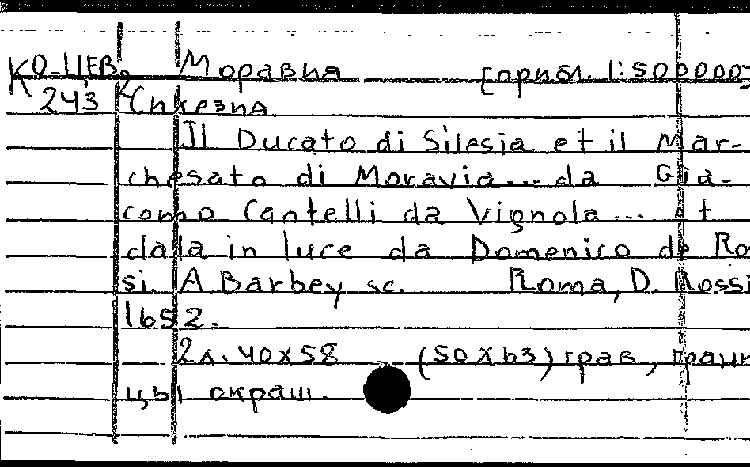 Ко-Цев, Моравия [прибл. 1:500000]
243 Силезия
Il Ducato di Silesia et il Mar-
chesato di Moravia... da Gia-
como Cantelli da Vignola... et
data in luce da Domenico de Ros
si. A Barbey sc. Roma, D. Rossi
1692.
2л. 40x58 (50x63) грав, грани
цы окраш.